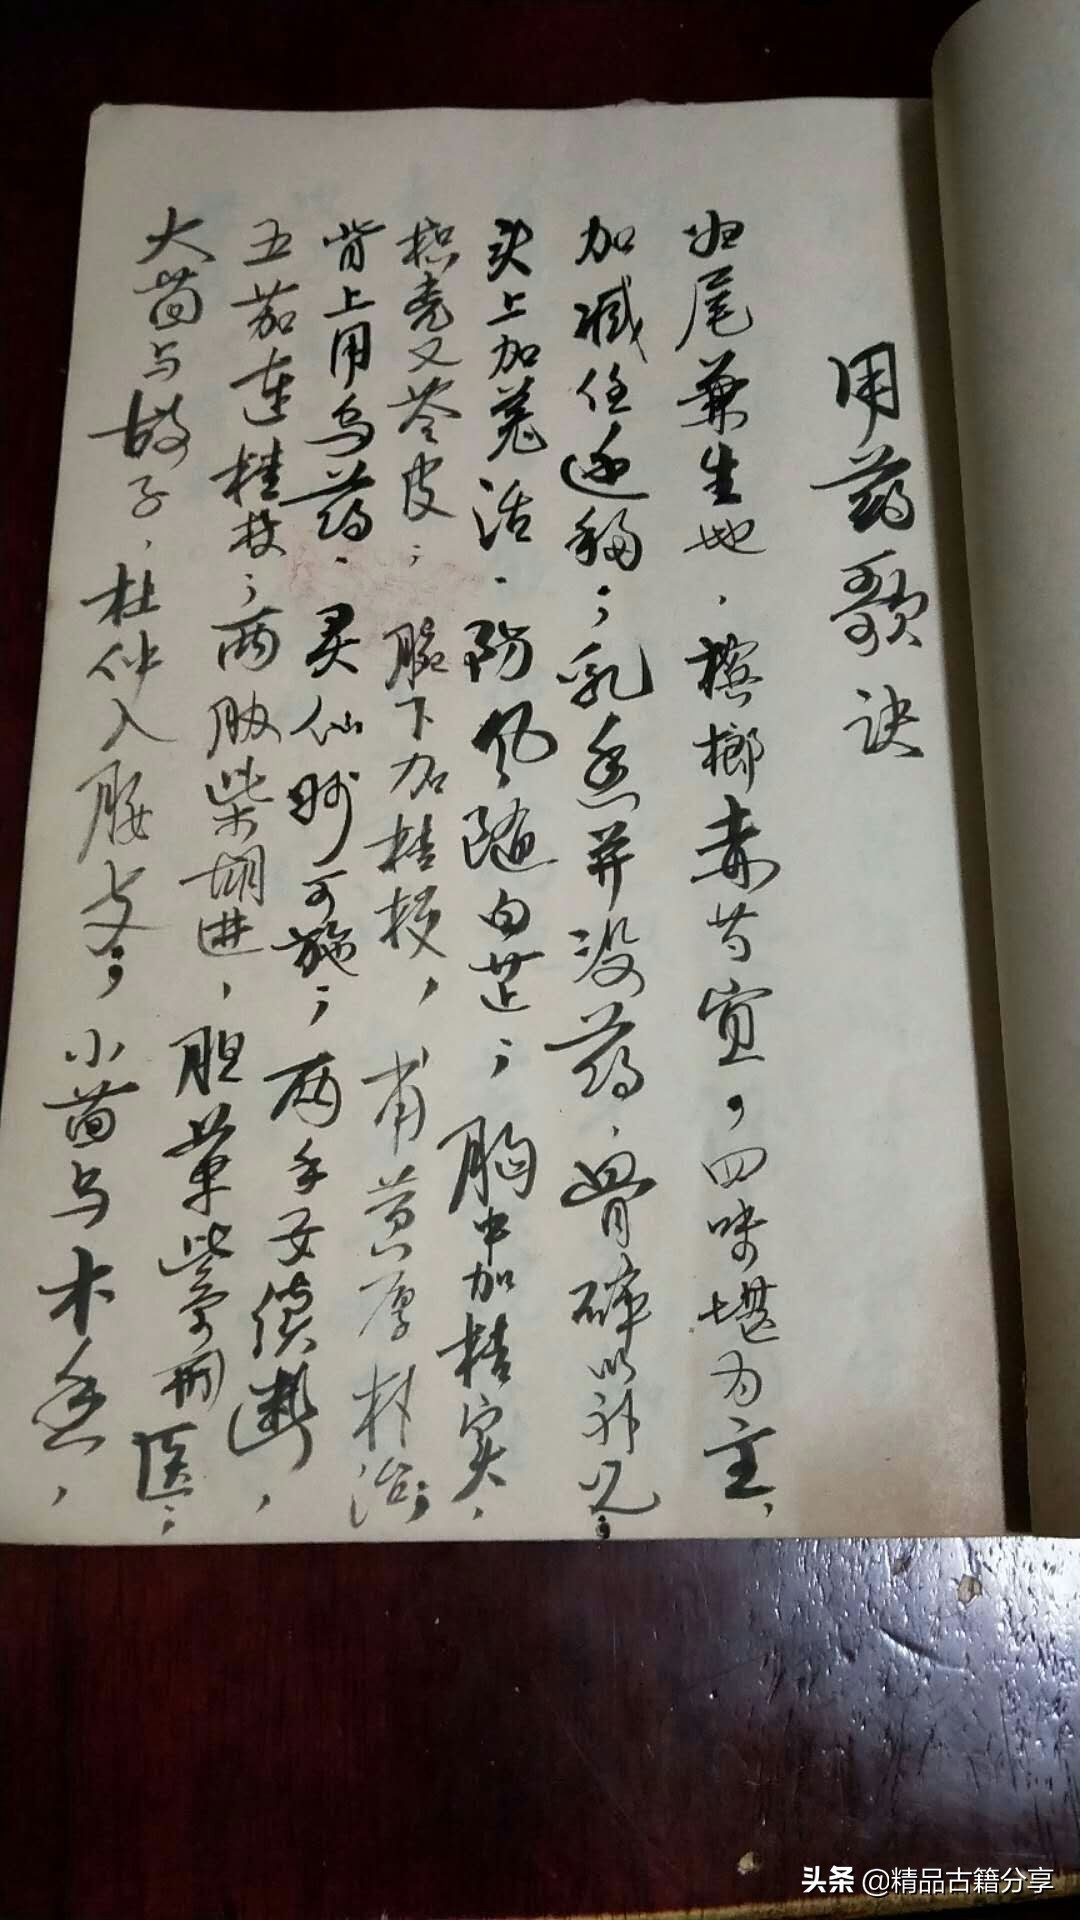 用药歌诀
归尾兼生地，槟榔赤芍宜，四味堪为主，
加减任迁移；乳香并没药，骨碎以补见；
头上加羌活，防风随白芷；胸中加桔实，
枳壳又苓皮；腕下加桔梗，菖厚朴治；
背上用乌药，灵仙妙可施；两手女续断，
五茄连桂枝；两胁柴胡进，胆草紫荆医；
大茴与故子，杜仲入腰支；小茴与木香，
头条 @精品古籍分享